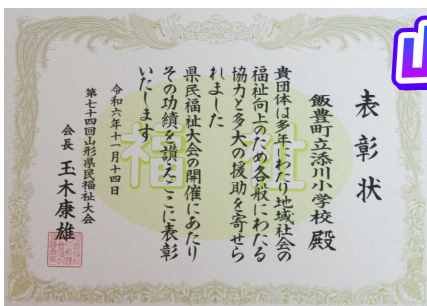 表彰状
飯豊町立添川小学校 殿
貴団体は多年にわたり地域社会の
福祉向上のため各般にわたる
協力と多大の援助を寄せら
れました
県民福祉大会の開催にあたり
その功績を讃えここに表彰
いたします
令和六年十一月十四日
第七十四回山形県民福祉大会
会長 玉木康雄
福祉